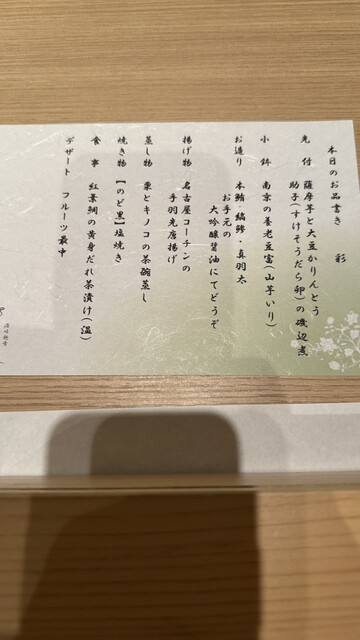 本日のお品書き 彩
先付 薩摩芋と大豆かりんとう
助子(すけそうだら卵)の磯辺煮
小鉢 南京の養老豆富(山芋いり)
お造り 本鮪・縞鯵・真羽太
お手元の
大吟醸醤油にてどうぞ
揚げ物 名古屋コーチンの
手羽先唐揚げ
蒸し物 栗とキノコの茶碗蒸し
焼き物 【のど黒】塩焼き
食事 紅葉鯛の黄身だれ茶漬け(温)
デザート フルーツ最中